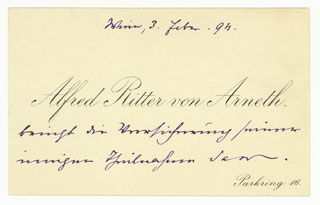 Wien, 3. Febr. 94.
Alfred Ritter von Arneth.
bringt die Versicherung seiner
innigen Theilnahme dar.
Parkring 16.